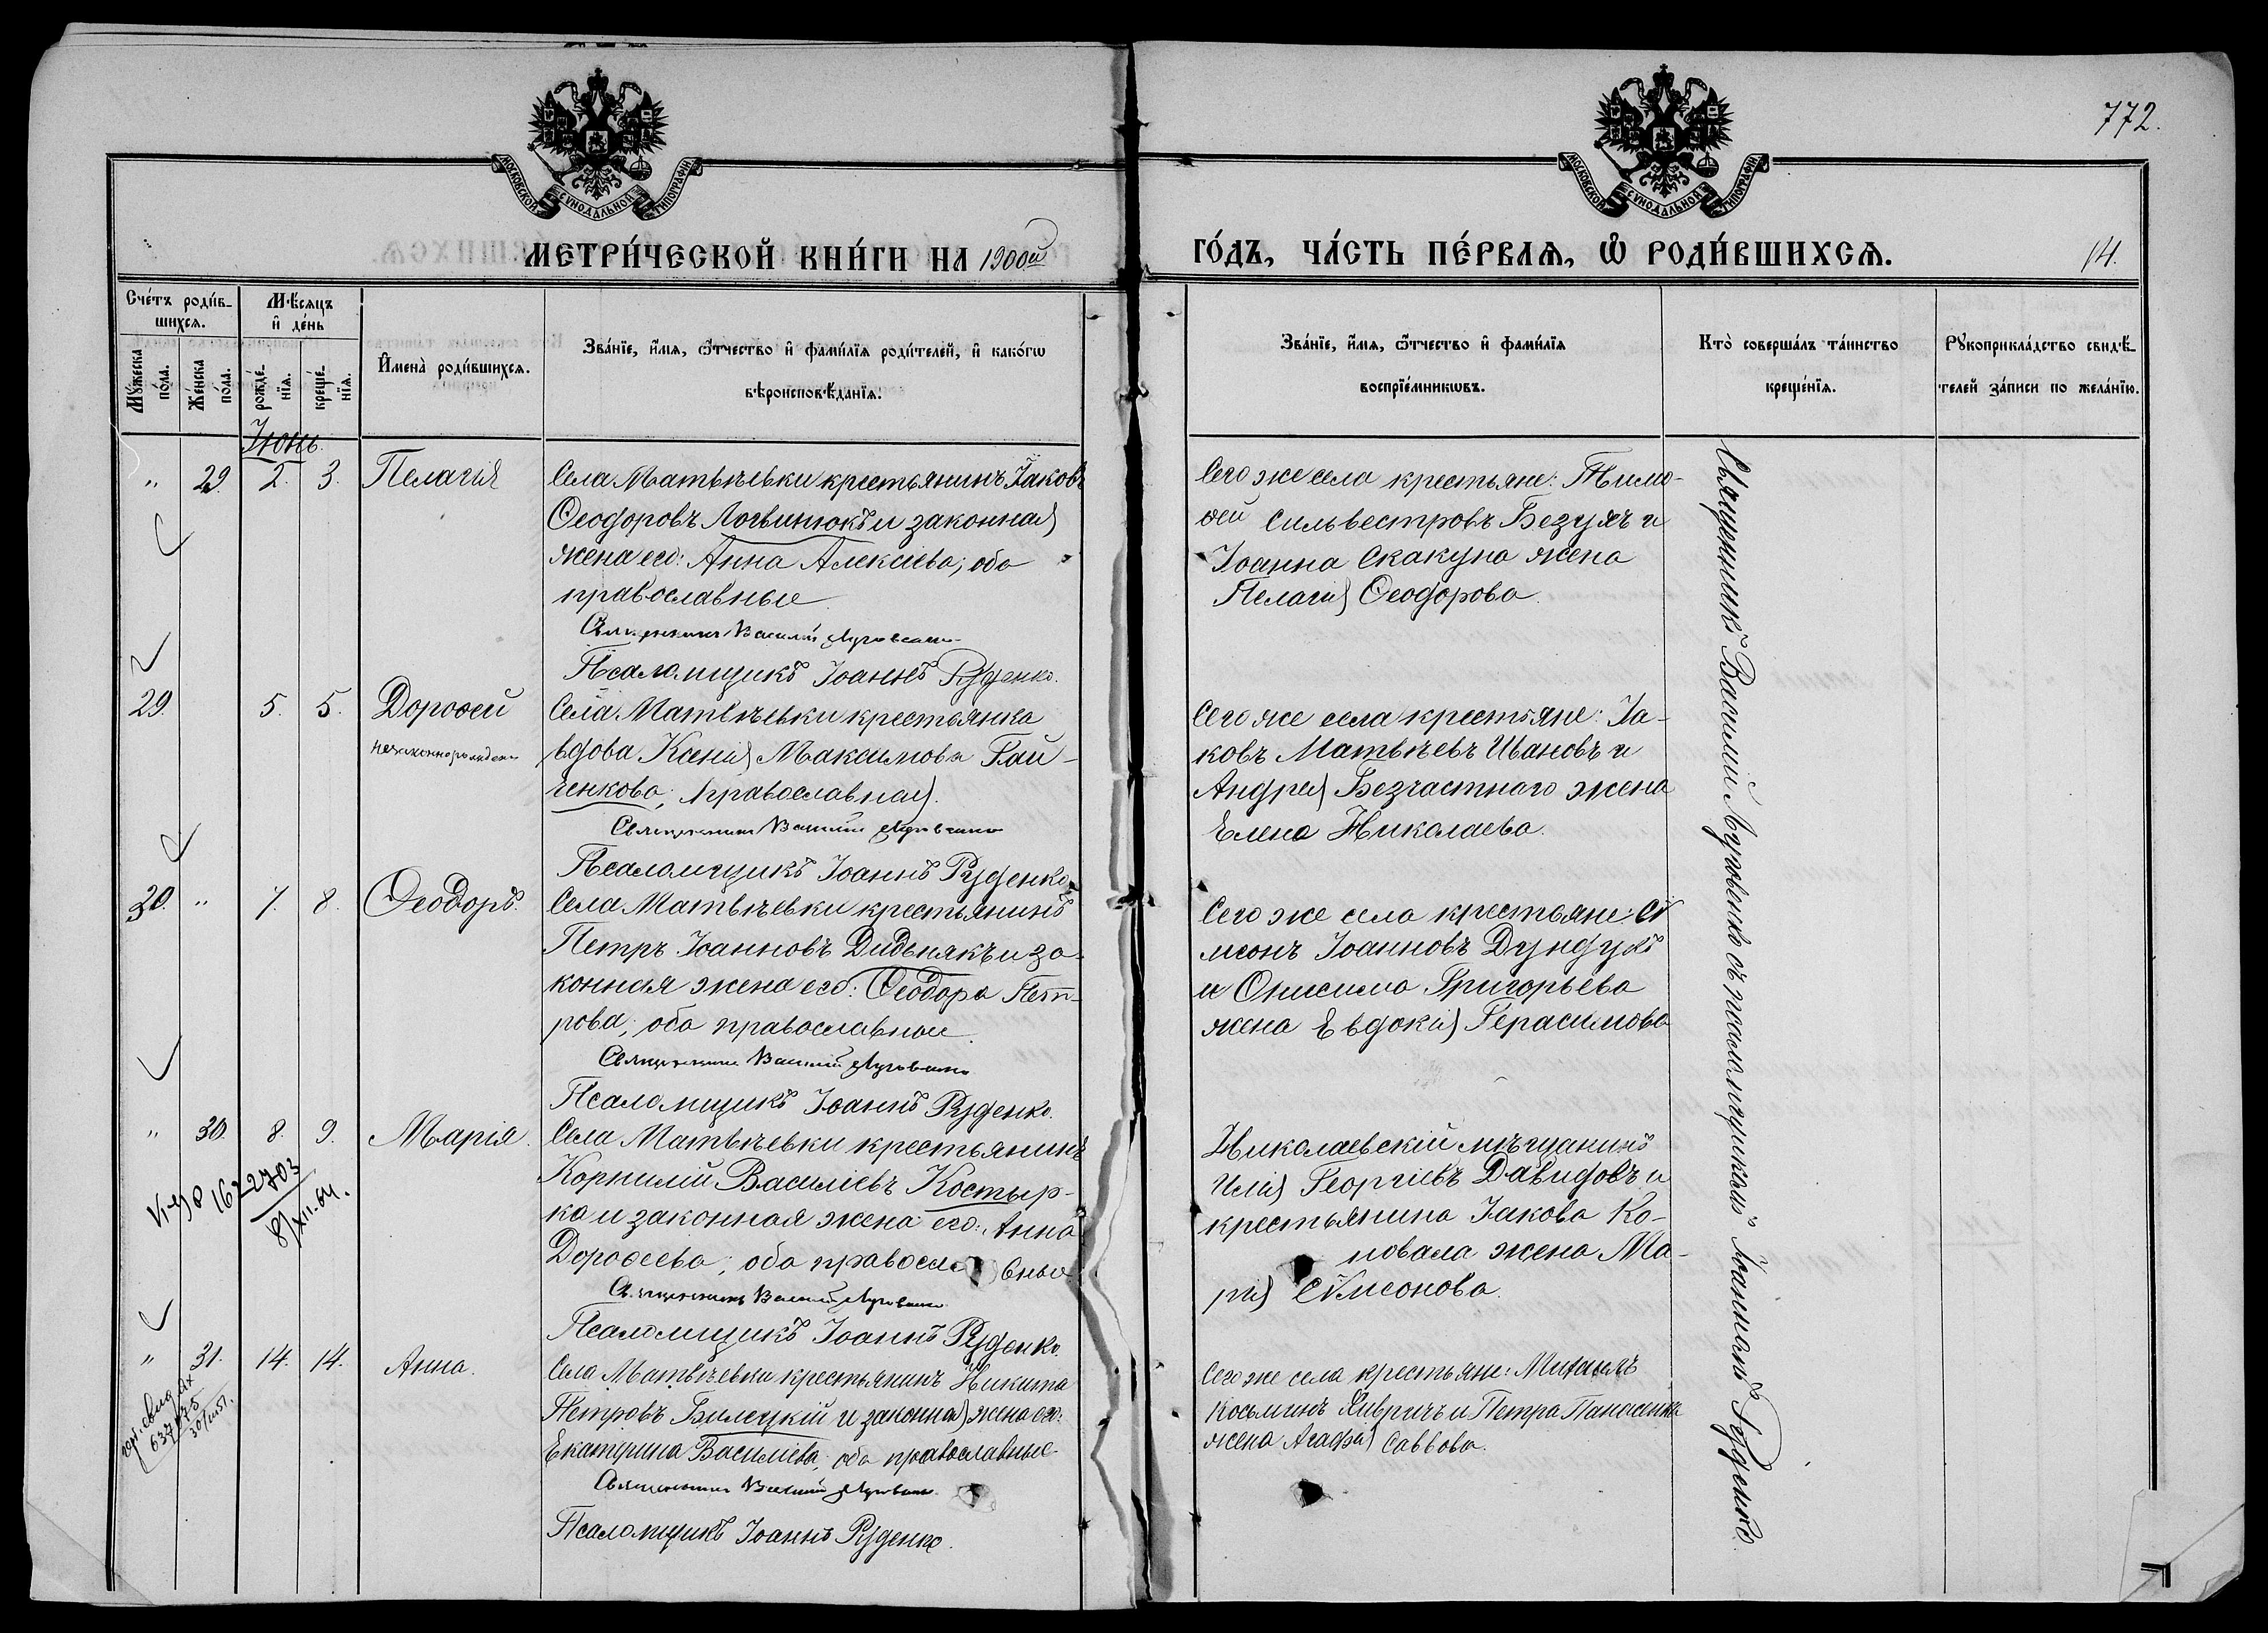 772.
МОСКОВСКОЙ СУНОДАЛЬНОЙ ТИПОГРАФИИ
МОСКОВСКОЙ СУНОДАЛЬНОЙ ТИПОГРАФИИ
МЕТРИ́ЧЕСКОЙ КНИ́ГИ НА 1900ый
ГО́ДЪ, ЧА́СТЬ ПЕ́РВАѦ, Ѡ РОДИ́ВШИХСѦ.
14.
Сче́тъ роди́в-
шихсѧ.
Мѣ́сѧцъ
и҆ де́нь
Мꙋ́жеска
по́ла.
Же́нска
по́ла.
рожде́-
нїѧ.
креще́-
нїѧ.
И҆мена̀ роди́вшихсѧ.
Зва́нїе, и҆́мѧ, ѻ҆́тчество и҆ фами́лїѧ роди́телей, и҆ како́гѡ
вѣроисповѣ́данїѧ.
Зва́нїе, и҆́мѧ, ѻ҆́тчество и҆ фами́лїѧ
воспрїе́мникѡвъ.
Кто̀ соверша́лъ та́инство
креще́нїѧ.
Рꙋкоприкла́дство свидѣ́-
телей за́писи по жела́нїю.
Іюнь.
" 29. 2. 3. Пелагія
Села Матвѣевки крестьянинъ Іаковъ
Ѳеодоровъ Логвинюкъ и законная
жена его: Анна Алексіева; оба
православные.
Священникъ Василій Луговенко
Псаломщикъ Іоаннъ Руденко.
Сего же села крестьяне: Тимо-
ѳей Сильвестровъ Безуяъ и
Іоанна Скакуна жена
Пелагія Ѳеодорова.
29. 5. 5. Дороѳей
незаконнорожден
Села Матвѣевки крестьянка
вдова Ксенія Максимова Гай-
ченкова; православная.
Священникъ Василій Луговенко
Псаломщикъ Іоаннъ Руденко.
Сего же села крестьяне: Іа-
ковъ Матвѣевъ Ивановъ и
Андрея Безчастнаго жена
Елена Николаева.
30. " 7. 8. Ѳеодоръ.
Села Матвѣевки крестьянинъ
Петръ Іоанновъ Дидьнякъ и за-
конная жена его: Ѳеодора Пет-
рова; оба православные.
Священникъ Василій Луговенко
Псаломщикъ Іоаннъ Руденко.
Сего же села крестьяне: Сѵ
меонъ Іоанновъ Дундукъ
и Онисима Григорьева
жена Евдокія Герасимова
" 30. 8. 9. Марія.
Села Матвѣевки крестьянинъ
Корнилій Василіевъ Костыр-
ка и законная жена его: Анна
Дороѳеева; оба правосла вные
Священникъ Василій Луговенко
Псаломщикъ Іоаннъ Руденко.
Николаевскій мѣщанинъ
Илія Георгіевъ Давидовъ и
крестьянина Іакова Ко-
новала жена Ма-
рія Сѵмеонова.
8/XII.64.
" 31. 14. 14. Анна.
Села Матвѣевки крестьянинъ Никита
Петровъ Билецкій и законная жена его:
Екатерина Василіева; оба православные
Священникъ Василій Луговенко
Псаломщикъ Іоаннъ Руденко.
Сего же села крестьяне: Михаилъ
Косьминъ Хивричъ и Петра Панасенка
жена Агафія Саввова.
Священникъ Василій Луговенко съ псаломщикомъ Іоанномъ Руденко